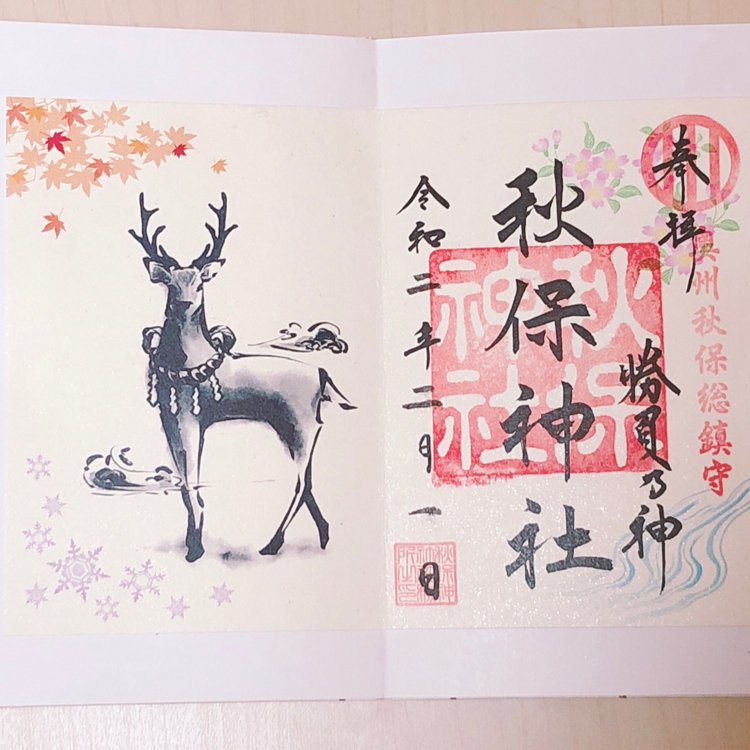 奉拝
奥州秋保総鎮守
勝負乃神
秋保神社
秋保神社
令和二年二月一日